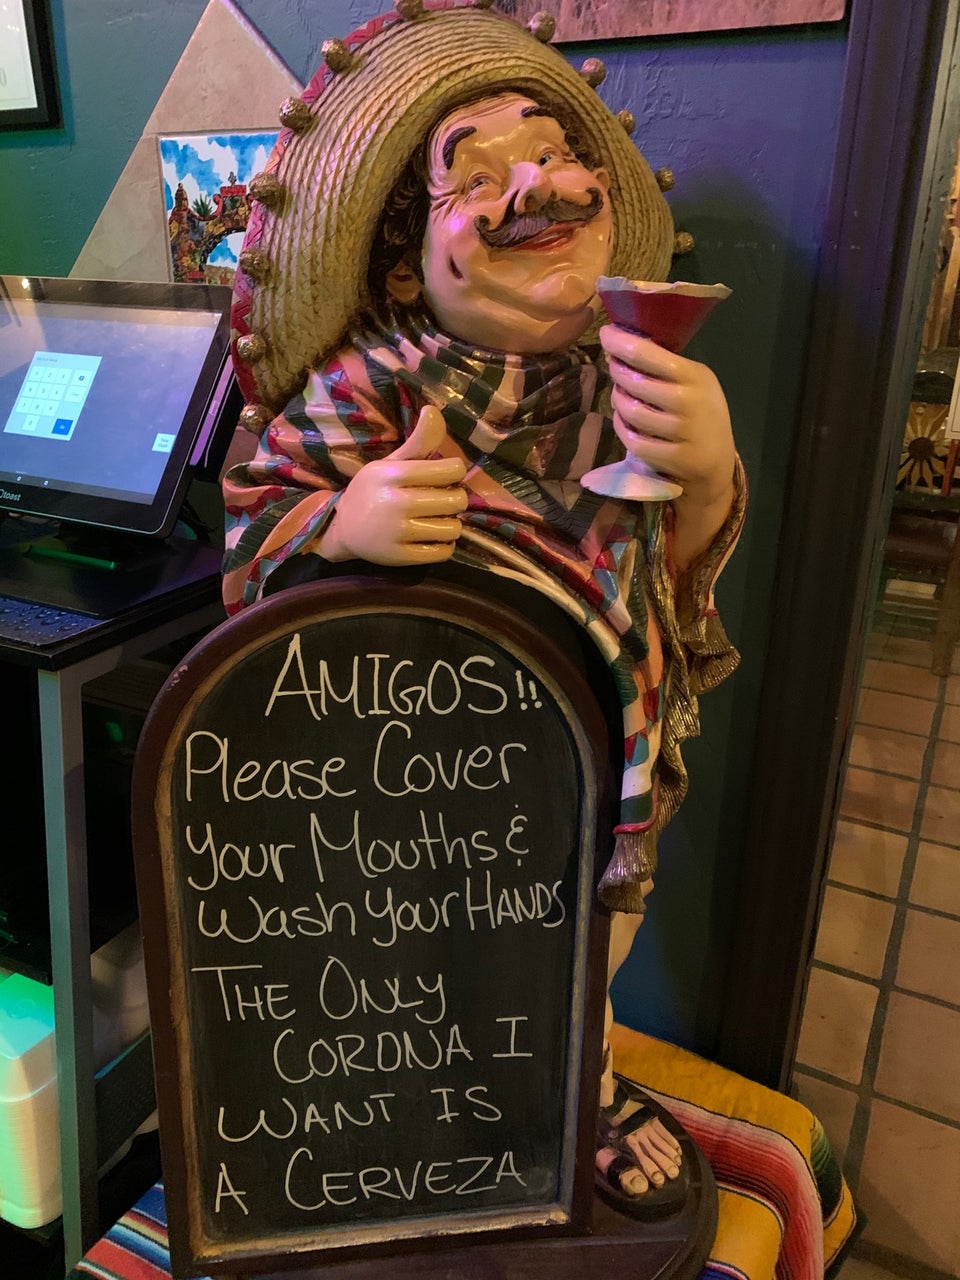 AMIGOS!!
Please Cover
Your Mouths &
Wash Your HANDS
THE ONLY
CORONA I
WANT IS
A CERVEZA
toast